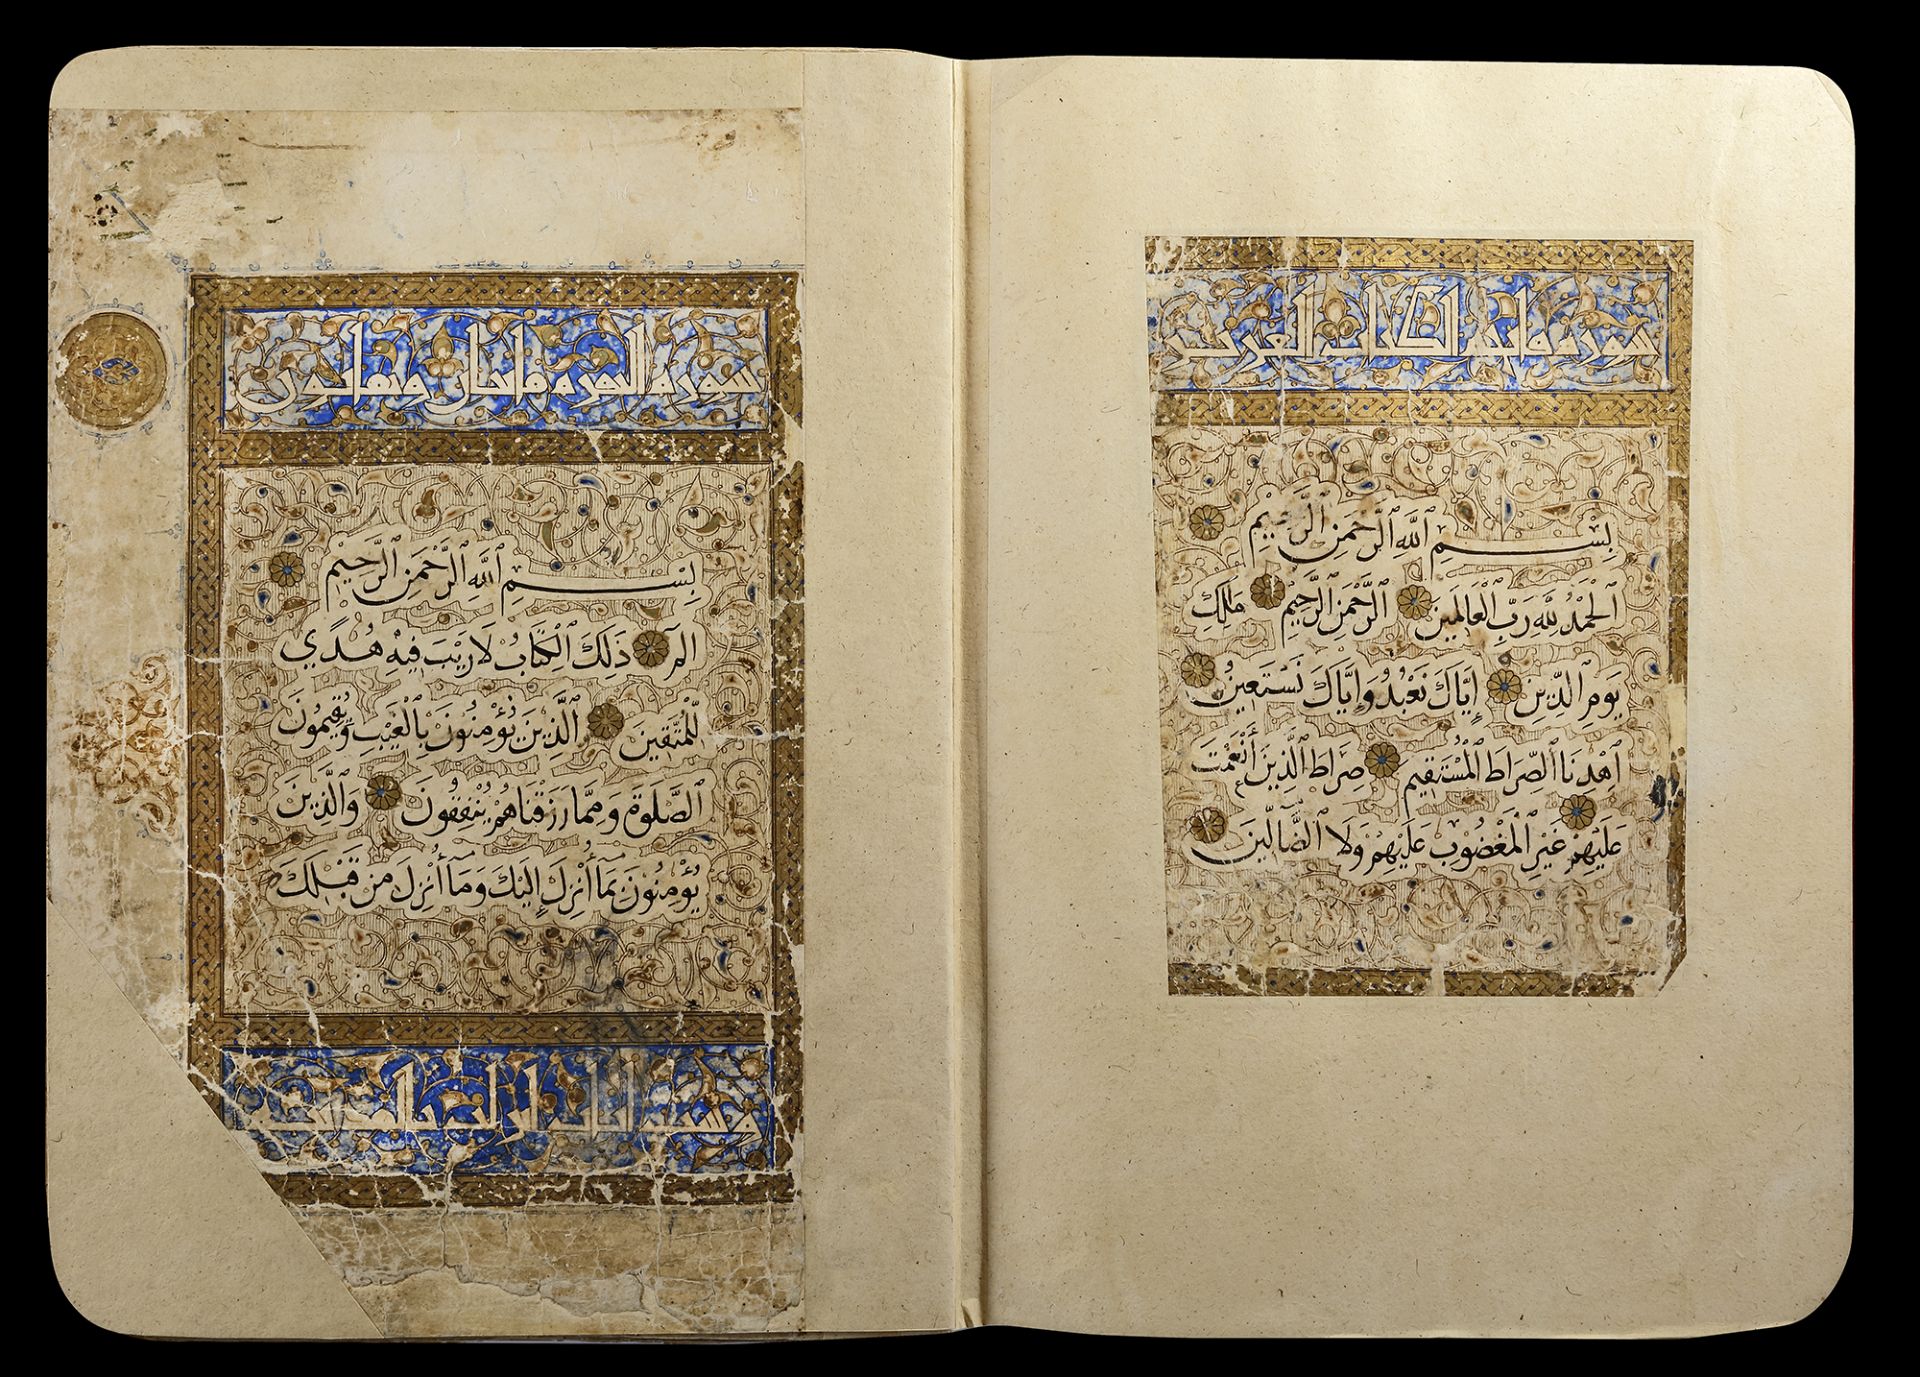 سورة فاتحة الكتاب العزيز
بِسْمِ ٱللَّهِ ٱلرَّحْمَنِ ٱلرَّحِيمِ
ٱلْحَمْدُ لِلَّهِ رَبِّ ٱلْعَالَمِينَ ٱلرَّحْمَنِ ٱلرَّحِيمِ مَلِكِ
يَوْمِ ٱلدِّينِ إِيَّاكَ نَعْبُدُ وَإِيَّاكَ نَسْتَعِينُ
ٱهْدِنَا ٱلصِّرَاطَ ٱلْمُسْتَقِيمَ صِرَاطَ ٱلَّذِينَ أَنْعَمْتَ
عَلَيْهِمْ غَيْرِ ٱلْمَغْضُوبِ عَلَيْهِمْ وَلَا ٱلضَّآلِّينَ
سورة البقرة مايتان وثمانون
بِسْمِ ٱللَّهِ ٱلرَّحْمَنِ ٱلرَّحِيمِ
الٓمٓ ذَلِكَ ٱلْكِتَابُ لَا رَيْبَ فِيهِ هُدًى
لِلْمُتَّقِينَ ٱلَّذِينَ يُؤْمِنُونَ بِٱلْغَيْبِ وَيُقِيمُونَ
ٱلصَّلَوةَ وَمِمَّا رَزَقْنَاهُمْ يُنْفِقُونَ وَٱلَّذِينَ
يُؤْمِنُونَ بِمَآ أُنْزِلَ إِلَيْكَ وَمَآ أُنْزِلَ مِنْ قَبْلِكَ
وست ايات نزلت بالمدينة